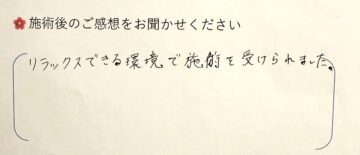 施術後のご感想をお聞かせください
リラックスできる環境で施術を受けられました。